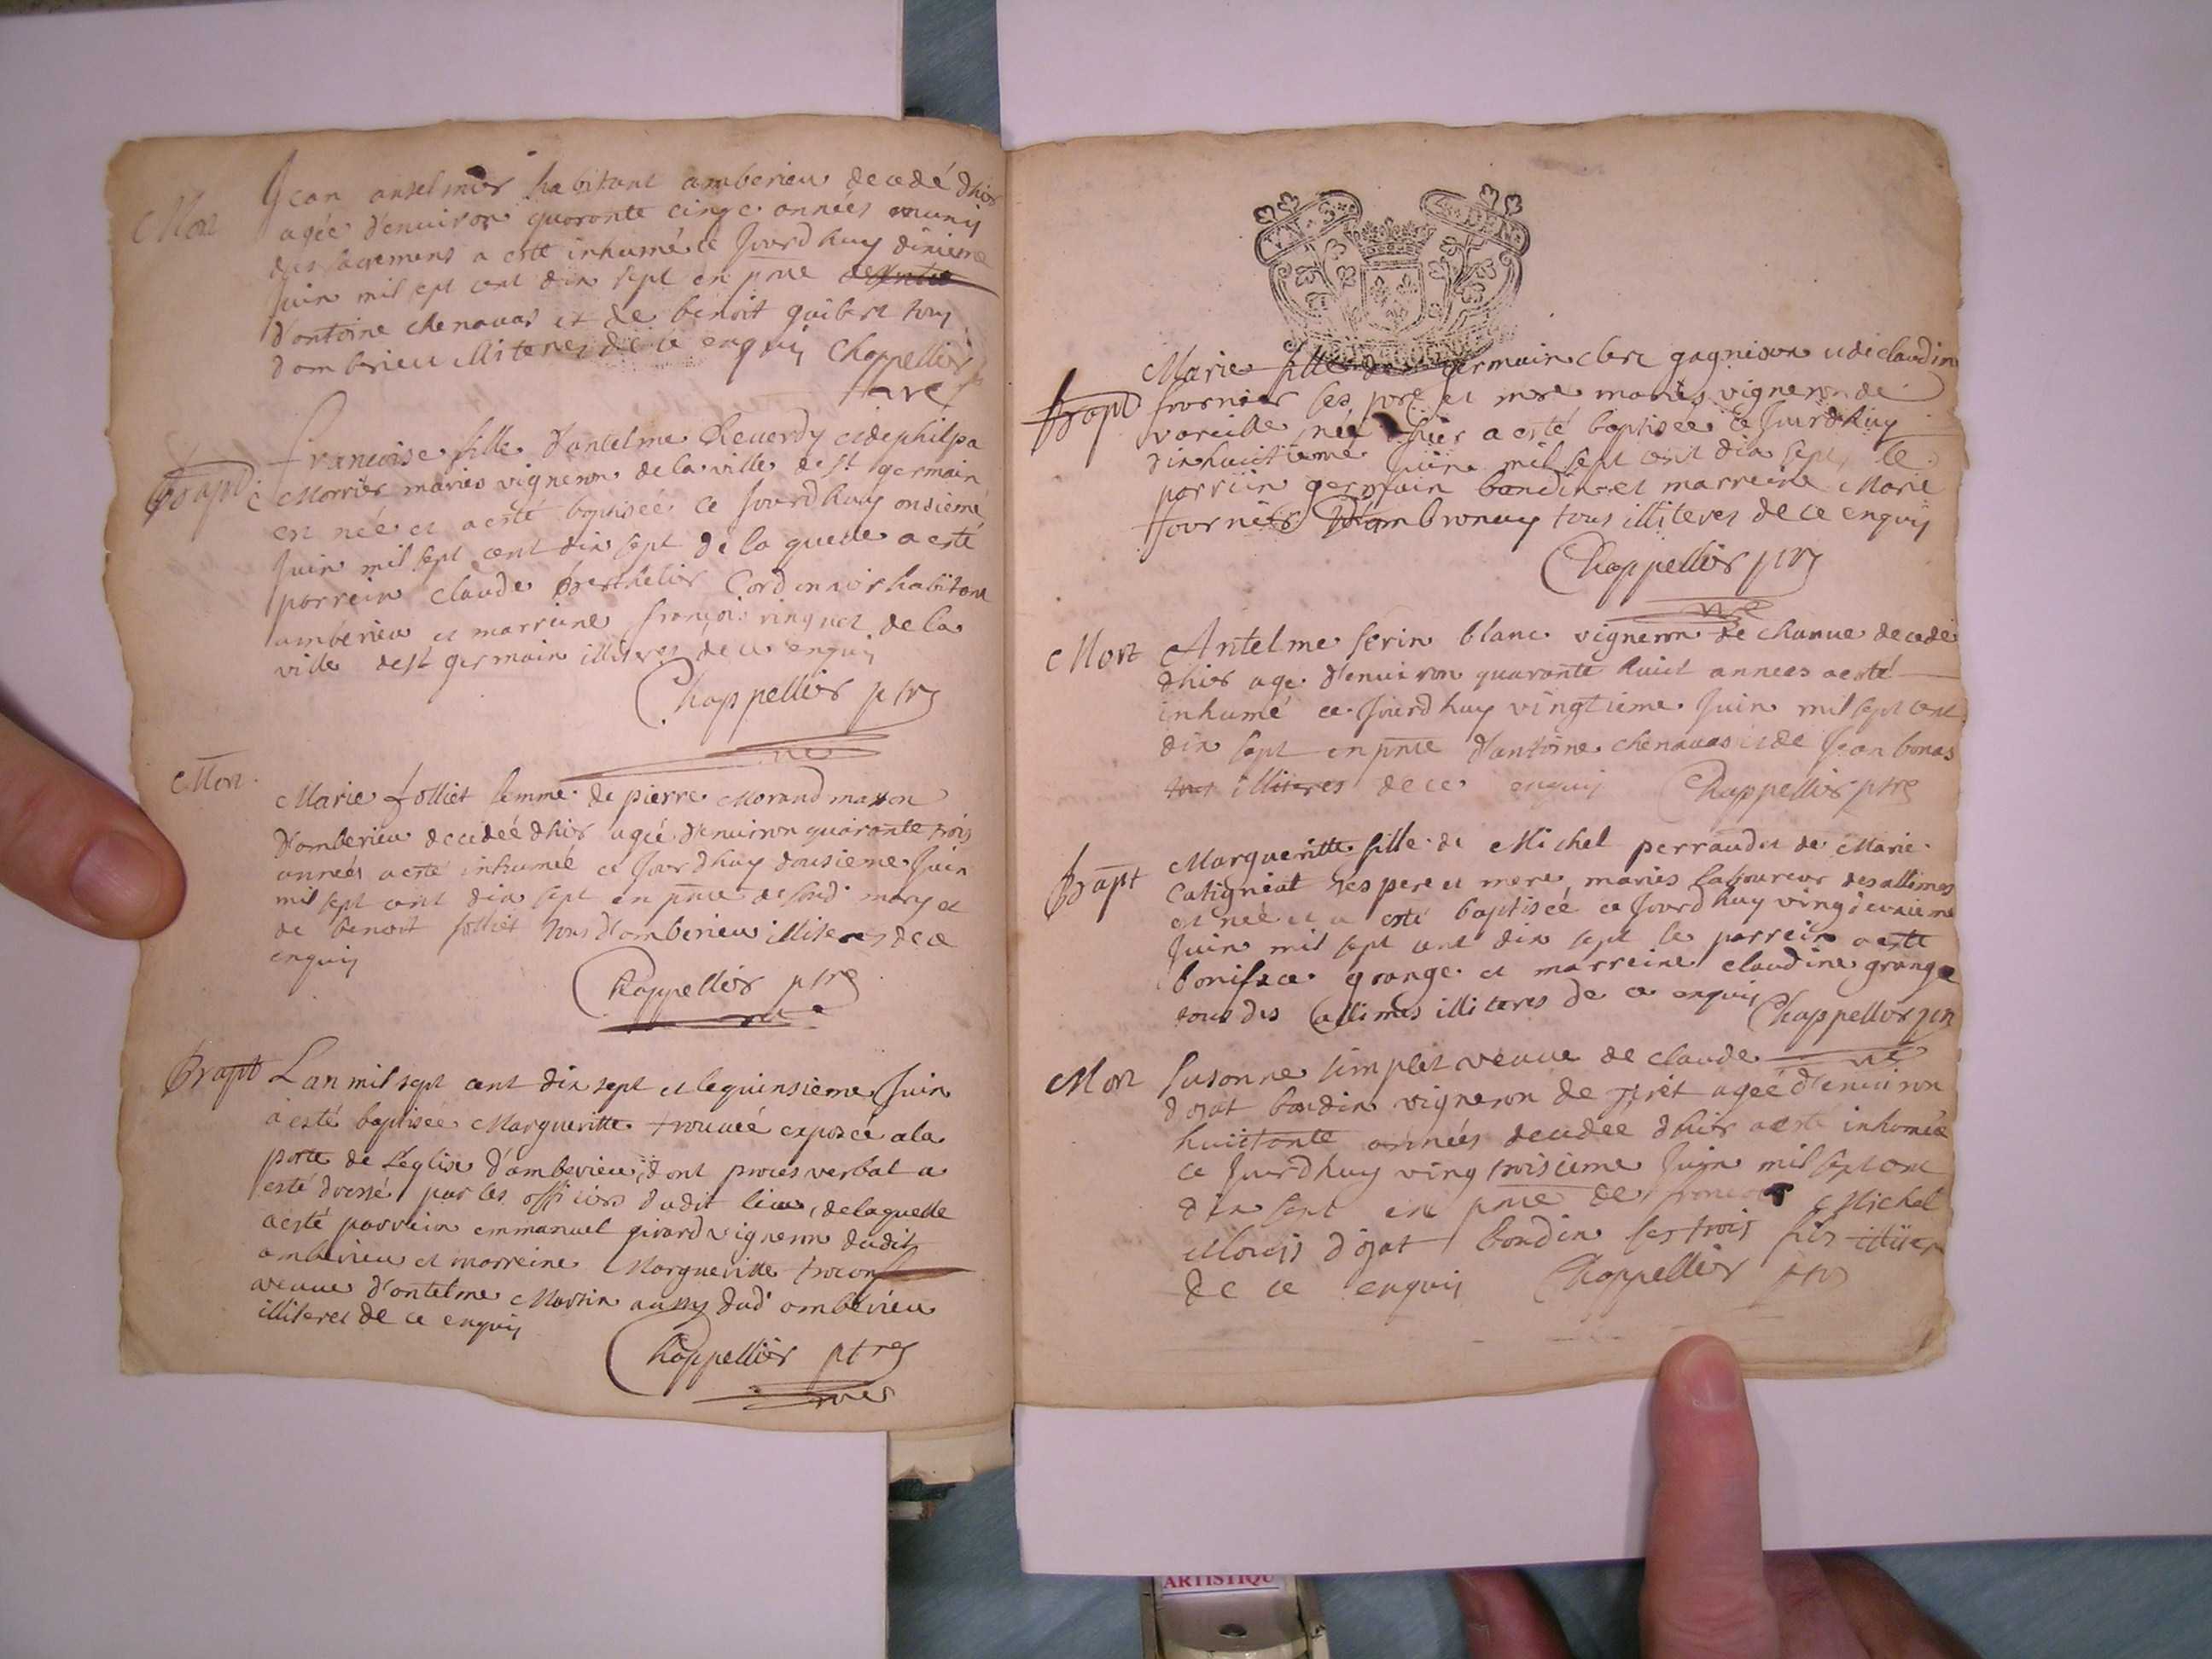 Mort
Jean anselmier habitant amberieu decedé d'hier
agée d'environ quarante cinqc années muny
des sacremens a esté inhumé ce Jourd huy dixieme
Juin mil sept cent dix sept en pnce
d'antoine chenavas et de benoit guibert tous
d'amberieu illiteres de ce enquis Chappellier
Bapt
francoise fille d'antelme Reverdy et de philpa
Morrier mariés vigneron de la ville de st germain
est née et a esté baptisée ce Jourd huy onsieme
Juin mil sept cent dix sept de la quelle a esté
parrein claude berthelier Cordonnier habitant
amberieu et marreine françoise ringuet de la
ville de st germain illiteres de ce enquis
Chappellier ptre
Mort
Marie folliet femme de pierre Morand masson
d'amberieu decedée d'hier agée d'environ quarante trois
années a esté inhumée ce Jourd huy dousieme Juin
mil sept cent dix sept en pnce de sond mary et
de benoit folliet tous d'amberieu illiteres de ce
enquis
Chappellier ptre
Bapt Lan mil sept cent dix sept et le quinsieme Juin
a esté baptisée Margueritte trouvée exposée a la
porte de l'eglise d'amberieu, dont proces verbal a
esté dressé par les officiers dudit lieu, de laquelle
a esté parrein emmanuel girard vigneron dudit
amberieu et marreine Margueritte
veuve d'antelme Martin aussy dud' amberieu
illiteres de ce enquis
Chappellier ptre
VN S
DEN
Bapt
Marie fille de germain clerc gagnison et de claudine
fournier ses pere et mere mariés vigneron de
vareille née hier a esté baptisée ce Jourd huy
dixhuictieme Juin mil sept cent dix sept, le
parrein germain bandin et marreine Marie
fournier d'ambronay tous illiteres de ce enquis
Chappellier ptre
Mort Antelme serin blanc vigneron de chanue decedé
d'hier age d'environ quarante huict annees a esté
inhumé ce Jourd huy vingtieme Juin mil sept cent
dix sept en pnce d'antoine chenavas et de Jean bonas
tous illiteres de ce enquis Chappellier ptre
Bapt
Margueritte fille de Michel perraud et de Marie
Catigniat ses pere et mere, mariés laboureur des allimes
est née et a esté baptisée ce Jourd huy
Juin mil sept cent dix sept le parrein a esté
boniface grange et marreine claudine grange
tous des allimes illiteres de ce enquis Chappellier ptre
Mort Susanne simplet veuve de claude
dojat bondin vigneron de tiret agée d'environ
huictante années decedée d'hier a esté inhumée
ce Jourd huy vingtroisieme Juin mil sept cent
dix sept en pnce de Michel
et louis dojat bondin ses trois fils
de ce enquis Chappellier ptre
ARTISTIQU